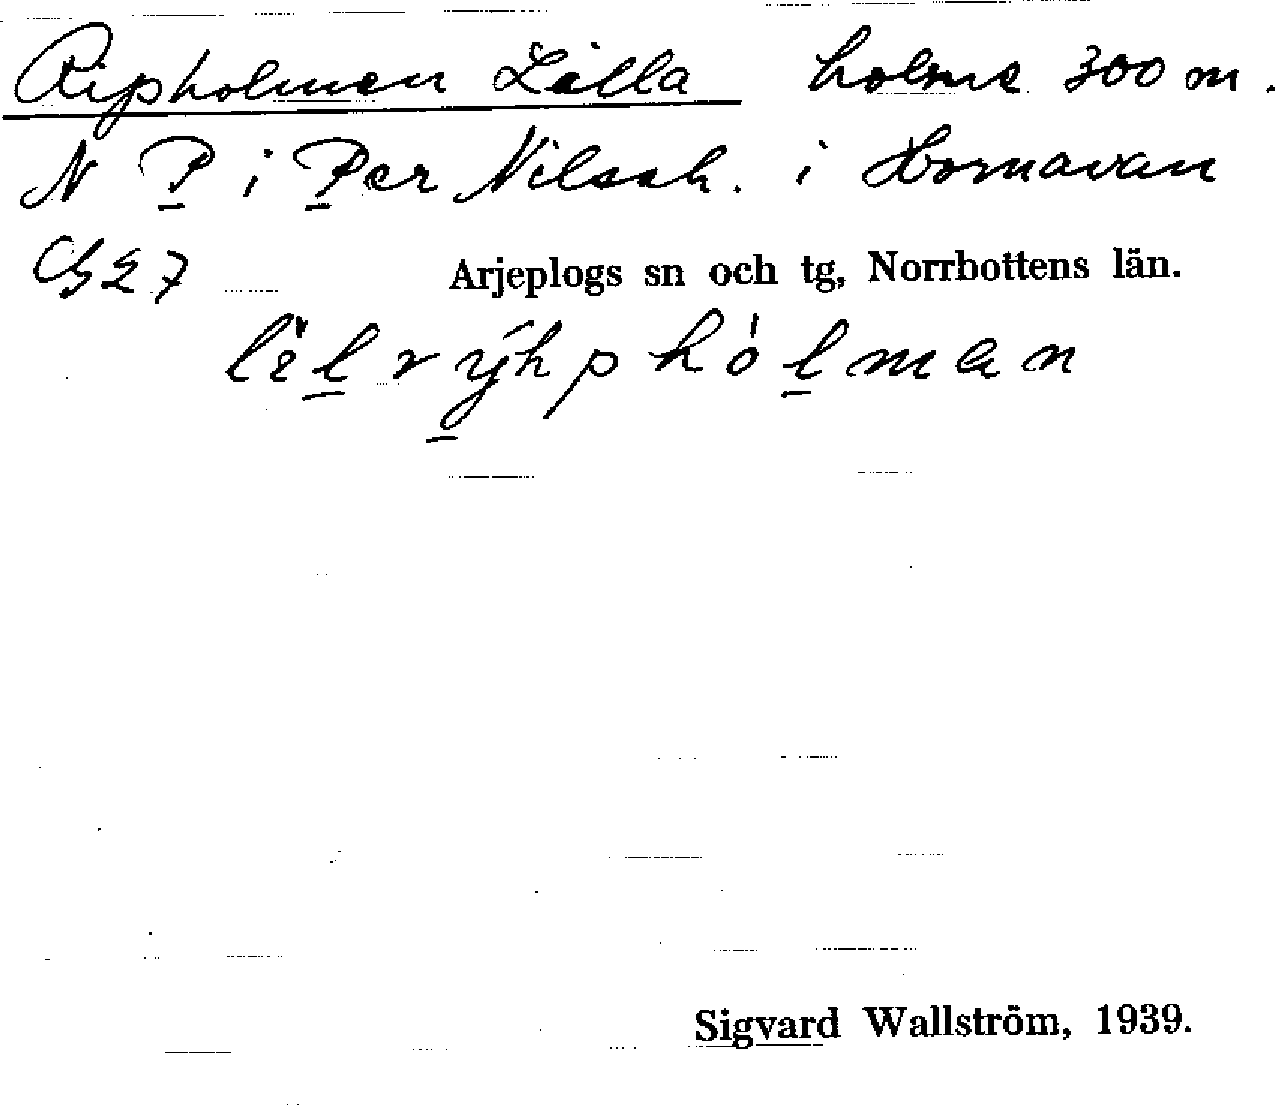 Ripholmen Lilla holme 300 m.
N P i Per Nilssh. i Hornavan
G27 Arjeplogs sn och tg, Norrbottens län.
lìlrýhphólman
Sigvard Wallström, 1939.